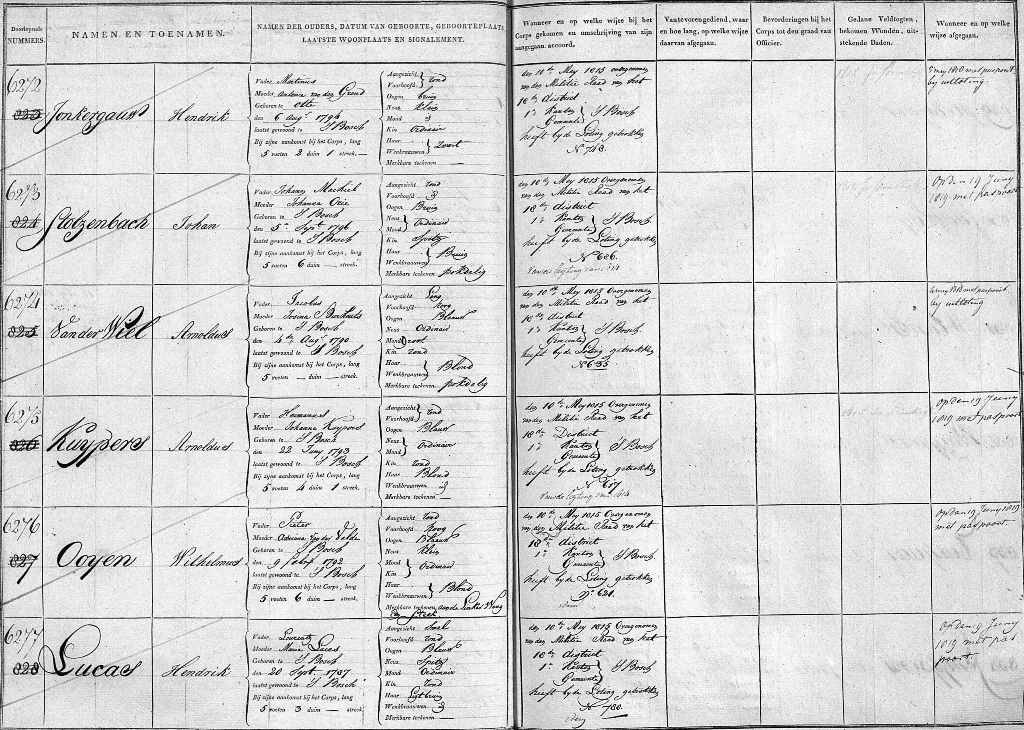 Doorloopende NUMMERS.
NAMEN EN TOENAMEN.
NAMEN DER OUDERS, DATUM VAN GEBOORTE, GEBOORTEPLAATS,
LAATSTE WOONPLAATS EN SIGNALEMENT.
Wanneer en op welke wijze bij het
Corps gekomen en omschrijving van zijn
aangegaan accoord.
Vaste voren gediend, waar
en hoe lang, op welke wijze
daarvan afgegaan.
Bevorderingen bij het
Corps tot den graad van
Officier.
Gedane Veldtogten,
bekomen Wonden, uit-
stekende Daden.
Wanneer en op welke
wijze afgegaan.
6272
823
Jonkergaust Hendrik
Vader Martinus
Moeder van der
Geboren te
den 6 Augt 1796
laatst gewoond te S Bosch
Bij zijne aankomst bij het Corps, lang
5 voeten 2 duim 1 streek
Aangezicht rond
Voorhoofd
Oogen bruin
Neus klein
Mond
Kin Ordinair
Haar
Wenkbraauwen Zwart
Merkbare teekenen
den 10de Mey 1815 overgenomen
van den Militie Raad van het
10de district
1e Kanton
Gemeente S Bosch
heeft by de Loting getrokken
No 748.
by uitloting
6273
824
Stolzenbach Johan
Vader Johann Machiel
Moeder Johanna
Geboren te S Bosch
den 5n Sept 1796
laatst gewoond te S Bosch
Bij zijne aankomst bij het Corps, lang
5 voeten 6 duim streek
Aangezicht rond
Voorhoofd
Oogen Bruin
Neus
Mond Ordinair
Kin Spits
Haar
Wenkbraauwen Bruin
Merkbare teekenen pokdalig
den 10de Mey 1815 Overgenomen
van den Militie Raad van het
10de district
1e Kanton
Gemeente S Bosch
heeft by de Loting getrokken
No 686.
van de ligting van 1814
Op den 19 Juny
1819 met paspoort
6274
825
Van der Wiel Arnoldus
Vader Jacobus
Moeder Josina
Geboren te S Bosch
den 4de Augt 1790
laatst gewoond te S Bosch
Bij zijne aankomst bij het Corps, lang
5 voeten duim streek
Aangezicht Lang
Voorhoofd hoog
Oogen Blauw
Neus Ordinair
Mond groot
Kin rond
Haar
Wenkbraauwen Blond
Merkbare teekenen pokdalig
den 10de Mey 1815 Overgenomen
van den Militie Raad van het
10de district
1e Kanton
Gemeente S Bosch
heeft by de Loting getrokken
No 635
by uitloting
6275
826
Kuypers Arnoldus
Vader Hermanus
Moeder Johanna Kuypers
Geboren te S Bosch
den 22 Juny 1793
laatst gewoond te S Bosch
Bij zijne aankomst bij het Corps, lang
5 voeten 4 duim 1 streek
Aangezicht
Voorhoofd rond
Oogen Blauw
Neus
Mond Ordinair
Kin rond
Haar Blond
Wenkbraauwen
Merkbare teekenen
den 10de Mey 1815 Overgenomen
van den Militie Raad van het
10de District
1e Kanton
Gemeente S Bosch
heeft by de Loting getrokken
No 617
van de ligting van 1814
Op den 19 Juny
1819 met paspoort
6276
827
Ooyen Wilhelmus
Vader Pieter
Moeder Adriana van der Velde
Geboren te S Bosch
den 9 1792
laatst gewoond te S Bosch
Bij zijne aankomst bij het Corps, lang
5 voeten 6 duim streek
Aangezicht rond
Voorhoofd hoog
Oogen Blauw
Neus klein
Mond
Kin Ordinair
Haar
Wenkbraauwen Blond
Merkbare teekenen aan de Linker Wang
den 10de Mey 1815 Overgenomen
van den Militie Raad van het
10de district
1e Kanton
Gemeente S Bosch
heeft by de Loting getrokken
No 621.
idem
Op den 19 Juny 1819
met paspoort
6277
828
Lucas Hendrik
Vader Laurentz
Moeder Maria Lucas
Geboren te S Bosch
den 20 Sept 1787
laatst gewoond te S Bosch
Bij zijne aankomst bij het Corps, lang
5 voeten 3 duim streek
Aangezicht Smal
Voorhoofd rond
Oogen Blauw
Neus Spits
Mond Ordinair
Kin rond
Haar Ligtbruin
Wenkbraauwen
Merkbare teekenen
den 10de Mey 1815 Overgenomen
van den Militie Raad van het
10de district
1e Kanton
Gemeente S Bosch
heeft by de Loting getrokken
No 780.
idem
Op den 19 Juny
1819 met pas
poort